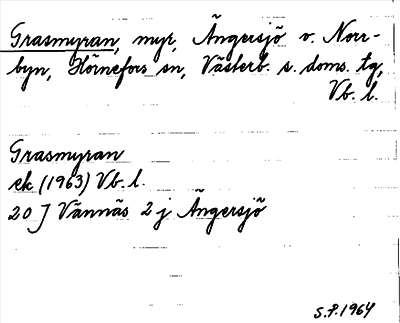 Grasmyran, myr, Ängersjö v. Norr-
byn, Hörnefors sn, Västerb. s. doms. tg,
Vb. l.
Grasmyran
ek (1963) Vb. l.
20 J Vännäs 2 j Ängersjö
S.P. 1964